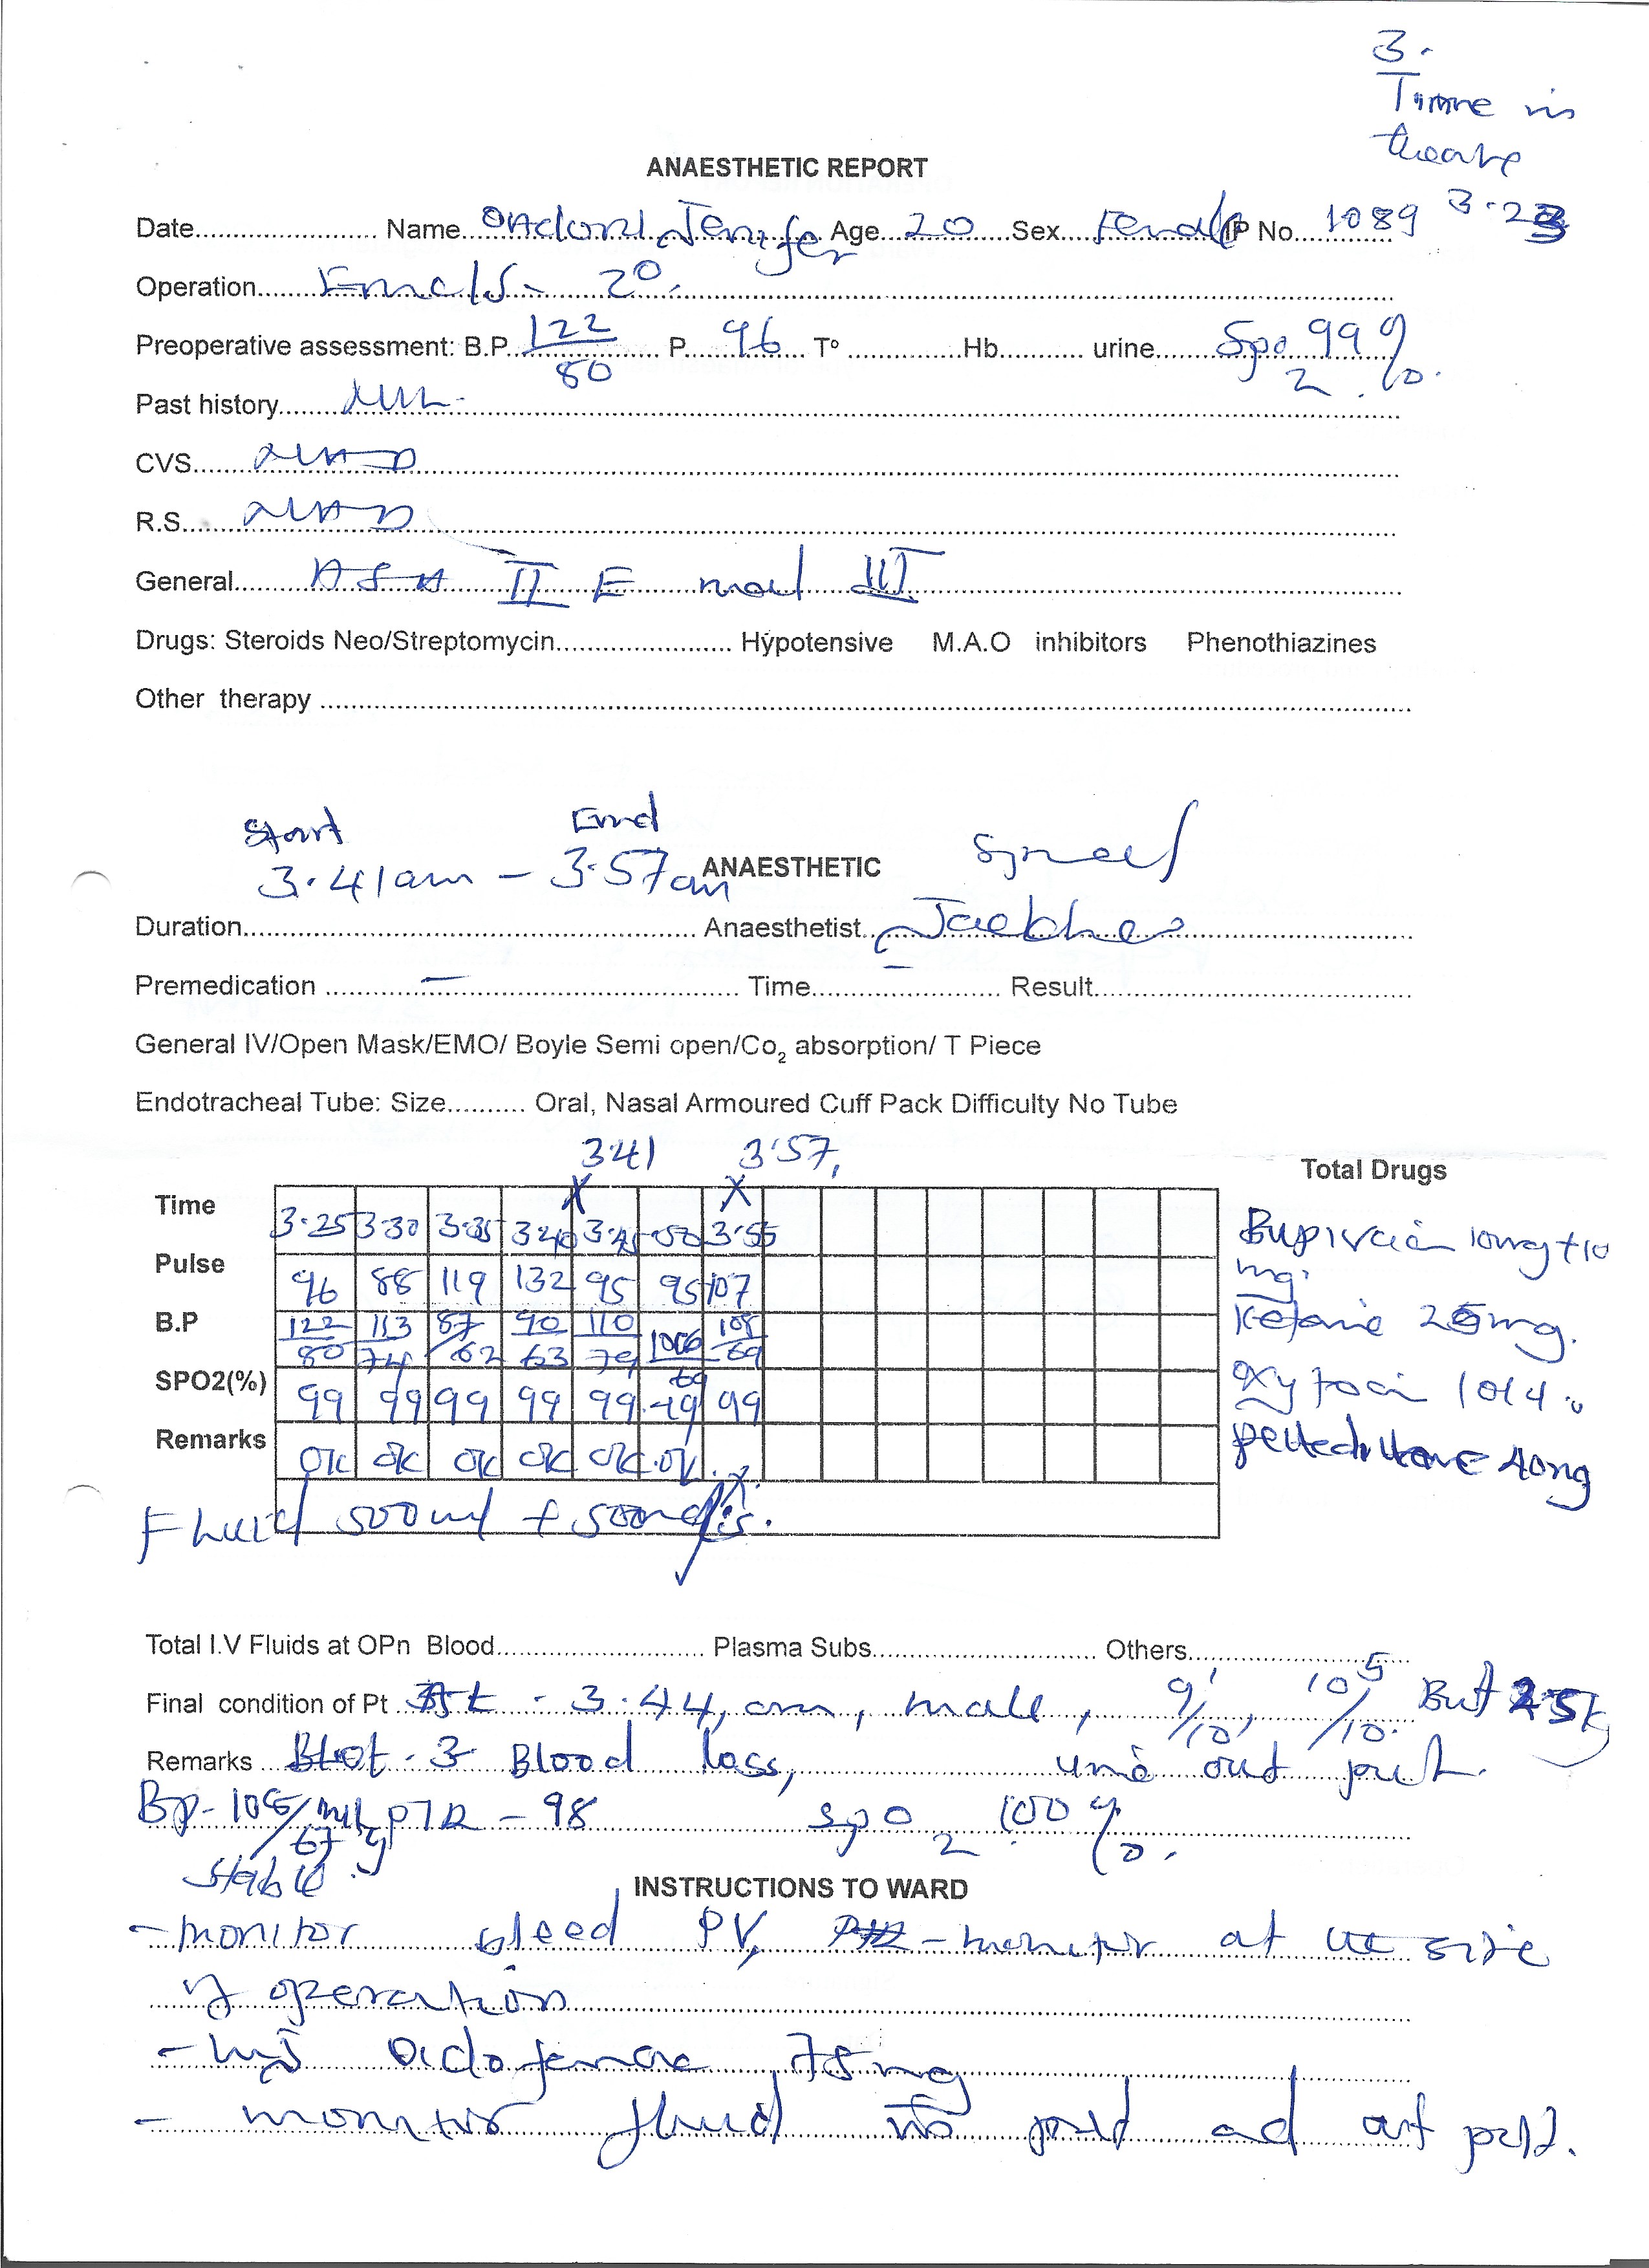 3.
Time in
theatre
3.23
ANAESTHETIC REPORT
Date.................... Name Ondoni Jenifer Age 20 Sex Female IP No. 1089
Operation Em c/s - 2°.
Preoperative assessment: B.P. 122/80 P. 96 T° Hb. urine Spo2 99%.
Past history Nil
CVS NAD
R.S. NAD
General ASA II E mal III
Drugs: Steroids Neo/Streptomycin Hypotensive M.A.O inhibitors Phenothiazines
Other therapy
Start End
3.41am - 3.57am ANAESTHETIC
Duration Anaesthetist
Premedication - Time Result
General IV/Open Mask/EMO/ Boyle Semi open/Co2 absorption/ T Piece
Endotracheal Tube: Size Oral, Nasal Armoured Cuff Pack Difficulty No Tube
3.41 3.57
Total Drugs
Time 3.25 3.30 3.35 3.40 3.45 .50 3.55
Pulse 96 88 119 132 95 95 107
B.P 122/80 113/74 87/62 90/63 110/79 106/69 108/69
SPO2(%) 99 99 99 99 99 99 99
Remarks OK OK OK OK OK OK
10mg + 10
mg.
25mg.
40mg
Fluid 500ml + 500mls.
Total I.V Fluids at OPn Blood Plasma Subs Others
Final condition of Pt At - 3.44, am, male, 9/10 1, 10/10 5
Remarks Blood loss, urine out put.
PR - 98 spo2 100%.
Stable
INSTRUCTIONS TO WARD
- monitor bleed PV, - monitor at the site
of operation
- inj diclofenac 75mg
- monitor fluid in put ad out put.